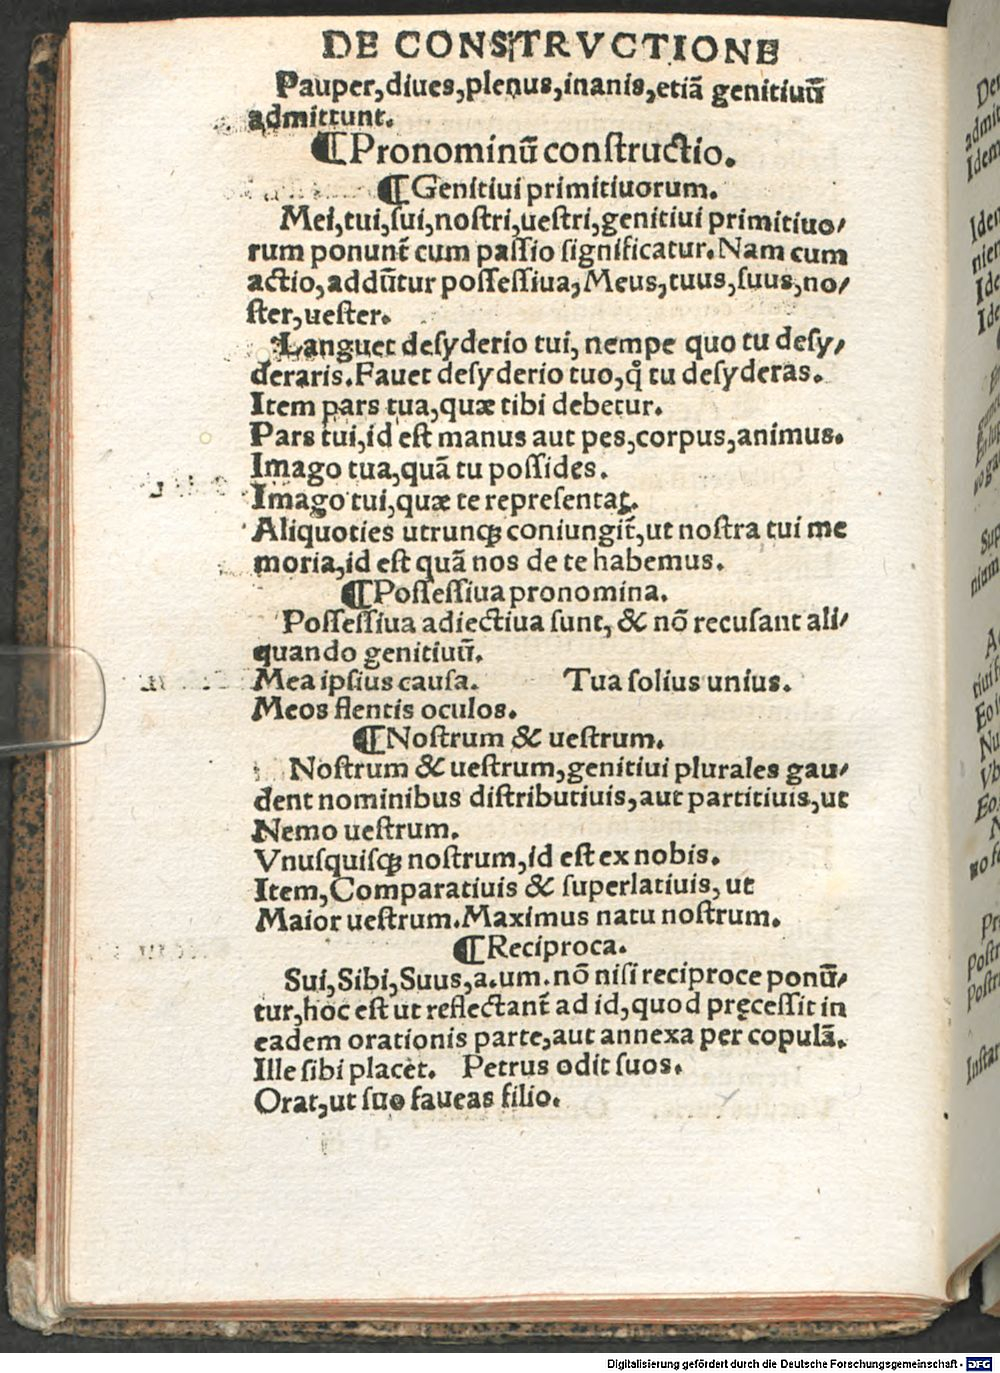 DE CONSTRVCTIONE
Pauper,diues,plenus,inanis,etiã genitiuũ
admittunt.
¶Pronominũ constructio.
¶Genitiui primitiuorum.
Mei,tui,sui,nostri,uestri,genitiui primitiuo/
rum ponunt̃ cum passio significatur.Nam cum
actio,addũtur possessiua,Meus,tuus,suus,no/
ster,uester.
Languet desyderio tui, nempe quo tu desy/
deraris.Fauet desyderio tuo,q̊ tu desyderas.
Item pars tua,quæ tibi debetur.
Pars tui,id est manus aut pes,corpus,animus.
Imago tua,quã tu possides.
Imago tui,quæ te representat.
Aliquoties utrunq; coniungit̃,ut nostra tui me
moria,id est quã nos de te habemus.
¶Possessiua pronomina.
Possessiua adiectiua sunt, & nõ recusant ali/
quando genitiuũ.
Mea ipsius causa. Tua solius unius.
Meos flentis oculos.
¶Nostrum & uestrum.
Nostrum & uestrum,genitiui plurales gau/
dent nominibus distributiuis,aut partitiuis,ut
Nemo uestrum.
Vnusquisq; nostrum,id est ex nobis.
Item,Comparatiuis & superlatiuis, ut
Maior uestrum.Maximus natu nostrum.
¶Reciproca.
Sui,Sibi,Suus,a.um.nõ nisi reciproce ponũ/
tur,hoc est ut reflectant̃ ad id,quod pręcessit in
eadem orationis parte,aut annexa per copulã.
Ille sibi placet. Petrus odit suos.
Orat,ut suo faueas filio.
Digitalisierung gefördert durch die Deutsche Forschungsgemeinschaft - DFG